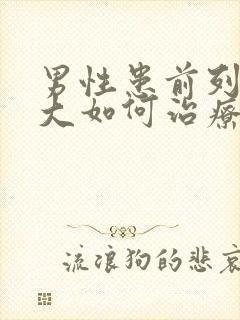 男性患前列
大如何治療
流浪狗的悲哀